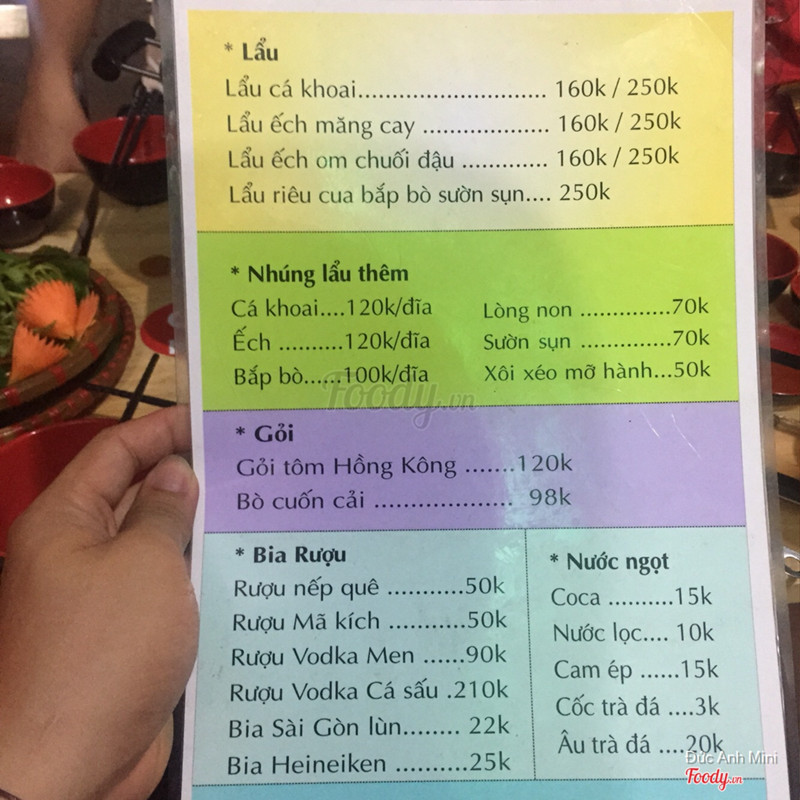 * Lẩu
Lẩu cá khoai........................... 160k / 250k
Lẩu ếch măng cay ................... 160k / 250k
Lẩu ếch om chuối đậu ............. 160k / 250k
Lẩu riêu cua bắp bò sườn sụn.... 250k
* Nhúng lẩu thêm
Cá khoai....120k/đĩa
Ếch ..........120k/đĩa
Bắp bò......100k/đĩa
Lòng non ..............70k
Sườn sụn ..............70k
Xôi xéo mỡ hành...50k
Foody.vn
* Gỏi
Gỏi tôm Hồng Kông .......120k
Bò cuốn cải .................... 98k
* Bia Rượu
Rượu nếp quê ...........50k
Rượu Mã kích ...........50k
Rượu Vodka Men ......90k
Rượu Vodka Cá sấu .210k
Bia Sài Gòn lùn........ 22k
Bia Heineiken ..........25k
* Nước ngọt
Coca ..........15k
Nước lọc.... 10k
Cam ép ......15k
Cốc trà đá ....3k
Âu trà đá ....20k
Đức Anh Mini
Foody.vn